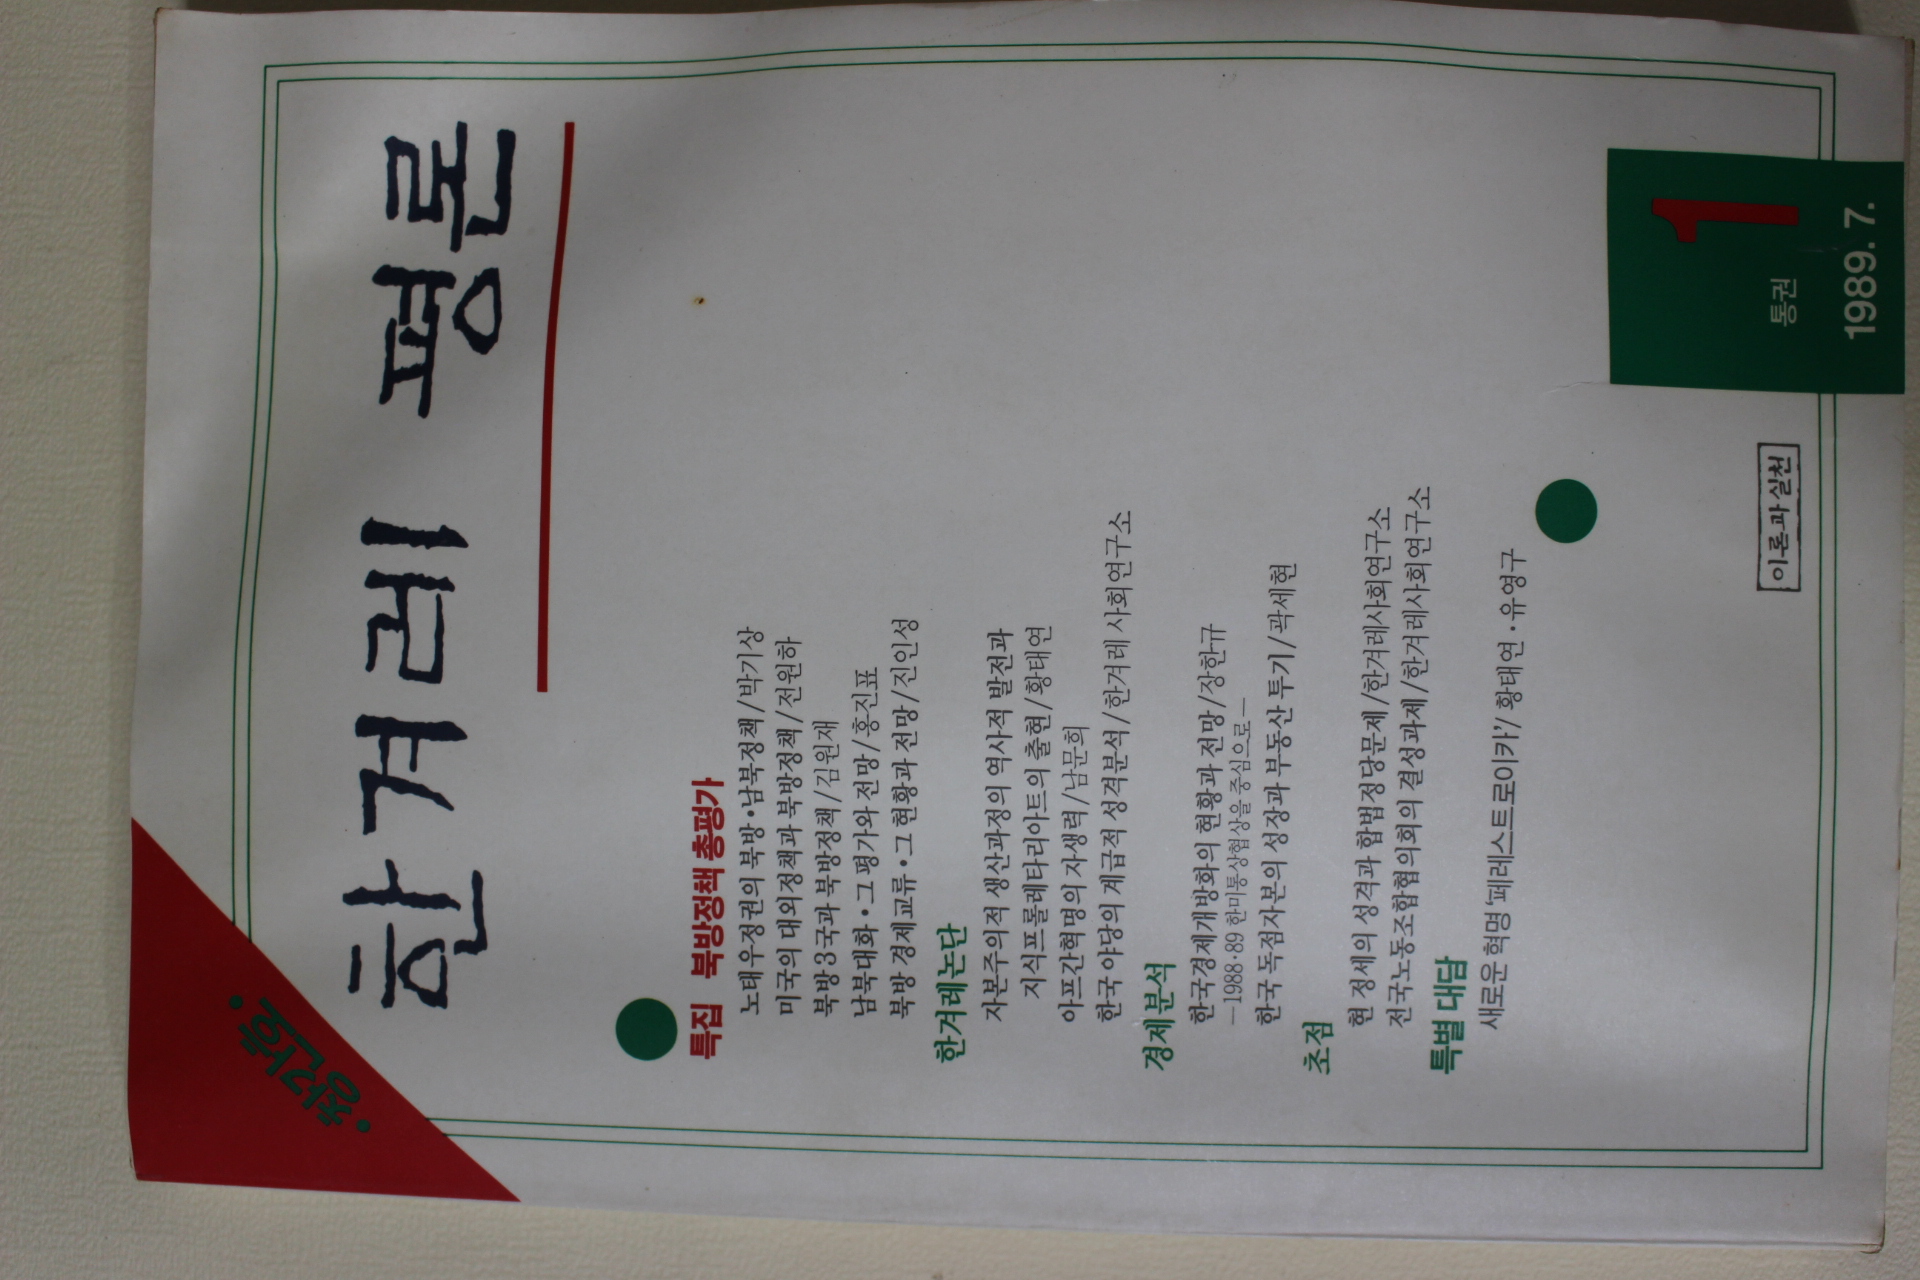 ·창간호·
한겨레 평론
특집 북방정책 총평가
노태우정권의 북방·남북정책/박기상
미국의 대외정책과 북방정책/전원하
북방3국과 북방정책/김원재
남북대화·그 평가와 전망/홍진표
북방 경제교류·그 현황과 전망/진인성
한겨레논단
자본주의적 생산과정의 역사적 발전과
지식프롤레타리아트의 출현/황태연
아프간혁명의 자생력/남문희
한국 야당의 계급적 성격분석/한겨레 사회연구소
경제분석
한국경제개방화의 현황과 전망/장한규
—1988·89 한미통상협상을 중심으로—
한국 독점자본의 성장과 부동산 투기/곽세현
초점
현 정세의 성격과 합법정당문제/한겨레사회연구소
전국노동조합협의회의 결성과제/한겨레사회연구소
특별 대담
새로운 혁명 '페레스트로이카'/황태연·유영구
이론과 실천
통권 1
1989. 7.